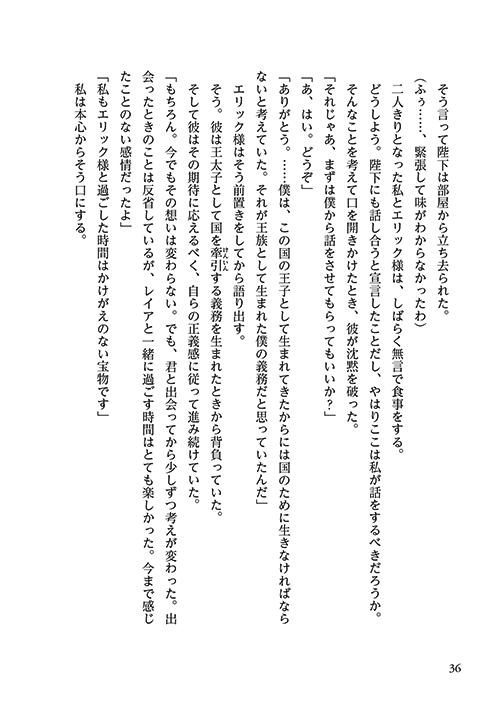 そう言って陛下は部屋から立ち去られた。
(ふぅ……、緊張して味がわからなかったわ)
二人きりとなった私とエリック様は、しばらく無言で食事をする。
どうしよう。陛下にも話し合うと宣言したことだし、やはりここは私が話をするべきだろうか。
そんなことを考えて口を開きかけたとき、彼が沈黙を破った。
「それじゃあ、まずは僕から話をさせてもらってもいいか？」
「あ、はい。どうぞ」
「ありがとう。……僕は、この国の王子として生まれてきたからには国のために生きなければなら
ないと考えていた。それが王族として生まれた僕の義務だと思っていたんだ」
エリック様はそう前置きをしてから語り出す。
そう。彼は王太子として国を牽引けんいんする義務を生まれたときから背負っていた。
そして彼はその期待に応えるべく、自らの正義感に従って進み続けていた。
「もちろん。今でもその想いは変わらない。でも、君と出会ってから少しずつ考えが変わった。出
会ったときのことは反省しているが、レイアと一緒に過ごす時間はとても楽しかった。今まで感じ
たことのない感情だったよ」
「私もエリック様と過ごした時間はかけがえのない宝物です」
私は本心からそう口にする。
36